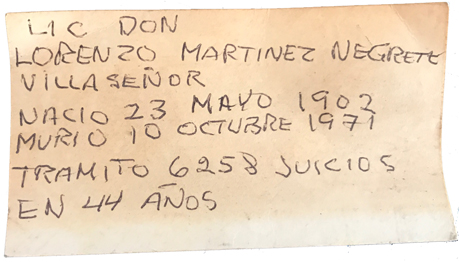 LIC DON
LORENZO MARTINEZ NEGRETE
VILLASEÑOR
NACIO 23 MAYO 1902
MURIO 10 OCTUBRE 1971
TRAMITO 6258 JUICIOS
EN 44 AÑOS